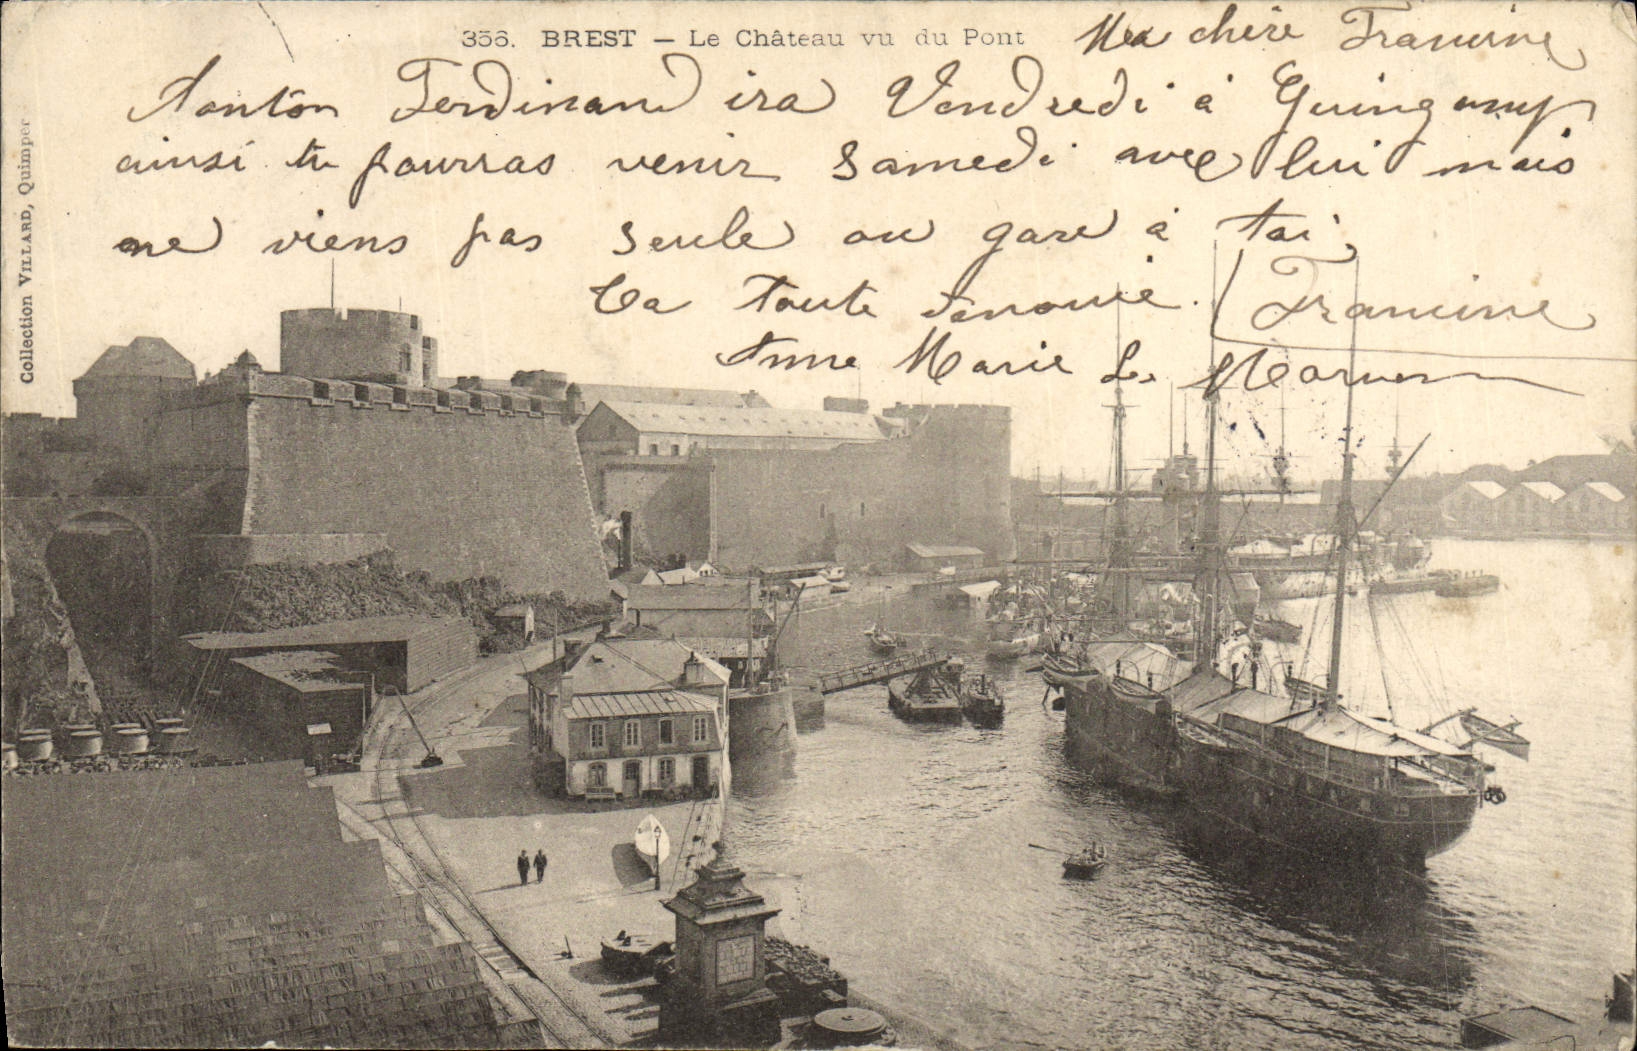 356. BREST — Le Château vu du Pont
Ma chère Francine
Tonton Ferdinand ira Vendredi à Guingamp
ainsi tu pourras venir Samedi avec lui mais
ne viens pas seule ou gare à toi
Ta toute dévouée. Francine
Anne Marie Le
Collection VILLARD, Quimper